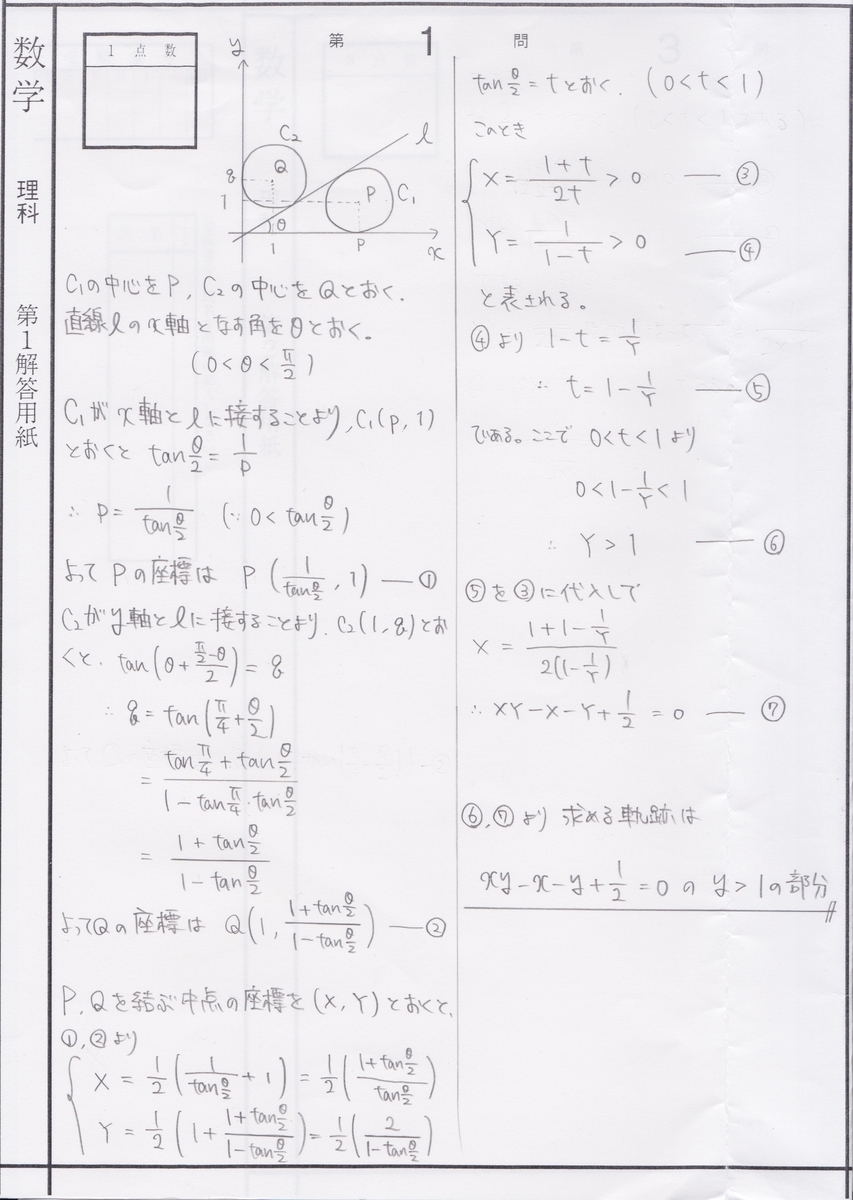 数学 理科 第1解答用紙
第 1 問
1 点 数
y
C₂
l
Q
q
1
P
C₁
θ
1
P
x
C₁の中心をP, C₂の中心をQとおく.
直線lのx軸となす角をθとおく。
(0<θ<π/2)
C₁がx軸とlに接することより, C₁(p, 1)
とおくと tan θ/2 = 1/p
∴ p = 1/(tan θ/2) (∵ 0<tan θ/2)
よってPの座標は P(1/(tan θ/2), 1) ― ①
C₂がy軸とlに接することより. C₂(1, q)とお
くと. tan(θ+(π/2-θ)/2) = q
∴ q = tan(π/4+θ/2)
= (tan π/4 + tan θ/2)/(1-tan π/4・tan θ/2)
= (1+tan θ/2)/(1-tan θ/2)
よってQの座標は Q(1, (1+tan θ/2)/(1-tan θ/2)) ― ②
P, Qを結ぶ中点の座標を(X, Y)とおくと,
①,②より
{ X = 1/2(1/(tan θ/2) + 1) = 1/2((1+tan θ/2)/(tan θ/2))
Y = 1/2(1+(1+tan θ/2)/(1-tan θ/2)) = 1/2(2/(1-tan θ/2))
tan θ/2 = t とおく. (0<t<1)
このとき
{ X = (1+t)/2t > 0 ― ③
Y = 1/(1-t) > 0 ― ④
と表される。
④より 1-t = 1/Y
∴ t = 1-1/Y ― ⑤
である。ここで 0<t<1より
0<1-1/Y<1
∴ Y>1 ― ⑥
⑤を③に代入して
X = (1+1-1/Y)/(2(1-1/Y))
∴ XY-X-Y+1/2 = 0 ― ⑦
⑥,⑦より 求める軌跡は
xy-x-y+1/2 = 0 の y>1の部分